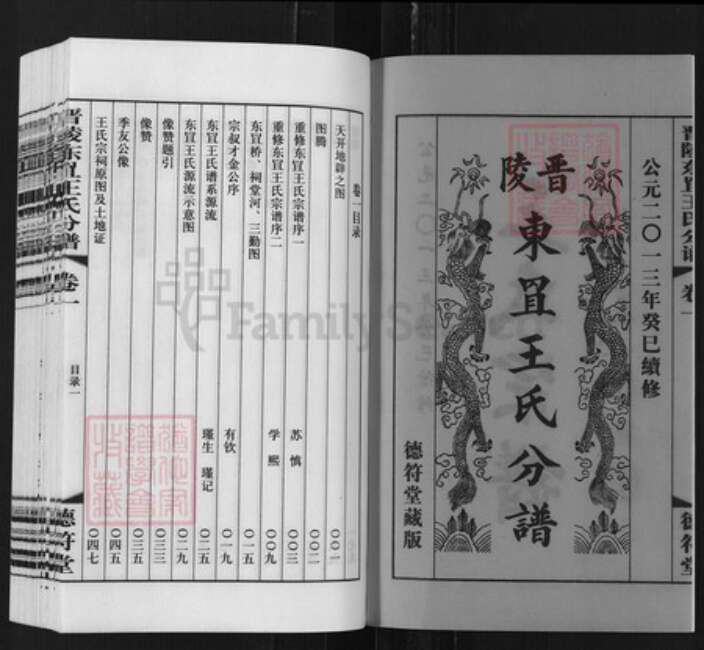 公元二〇一三年癸巳續修
晋陵
東罝王氏分譜
德符堂藏版
德符堂
卷一目录
天开地辟之图 〇〇一
图腾 〇〇二
重修东罝王氏宗谱序一 苏慎 〇〇三
重修东罝王氏宗谱序二 学熙 〇〇九
东罝桥、祠堂河、三勤图 〇一五
宗叔才金公序 有钦 〇一九
东罝王氏谱系源流 瑾生 瑾记 〇二五
东罝王氏源流示意图 〇二九
像赞题引 〇三三
像赞 〇三五
季友公像 〇四五
王氏宗祠原图及土地证 〇四七
晋陵东罝王氏分谱 卷一 目录一 德符堂
FamilySearch